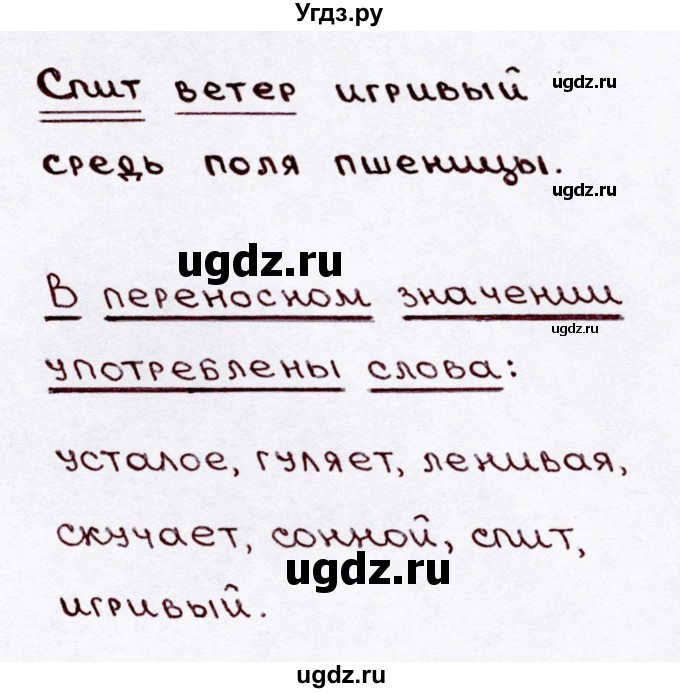 Угдз.ру
Спит ветер игривый
ugdz.ru
средь поля пшеницы.
ugdz.ru
ugdz.ru
В переносном значении
ugdz.ru
употреблены слова:
усталое, гуляет, ленивая,
скучает, сонной, спит,
ugdz.ru
игривый.
ugdz.ru